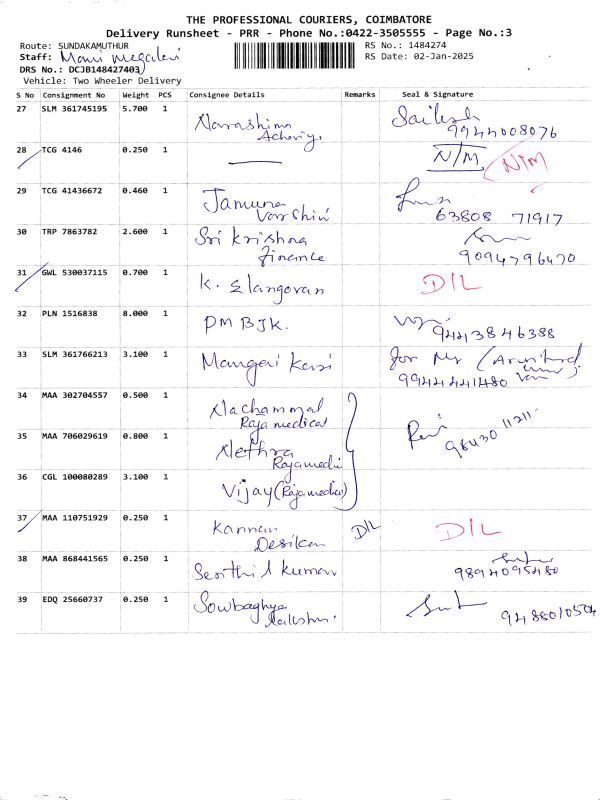 THE PROFESSIONAL COURIERS, COIMBATORE
Delivery Runsheet - PRR - Phone No.:0422-3505555 - Page No.:3
Route: SUNDAKAMUTHUR RS No.: 1484274
Staff: RS Date: 02-Jan-2025
DRS No.: DCJB148427403
Vehicle: Two Wheeler Delivery
S No Consignment No Weight PCS Consignee Details Remarks Seal & Signature
27 SLM 361745195 5.700 1 Narashima
9944008076
28 TCG 4146 0.250 1 N/M N/M
29 TCG 41436672 0.460 1 Jamuna
Varshini 63808 71917
30 TRP 7863782 2.600 1 Sri Krishna
Finance 9094796470
31 GWL 530037115 0.700 1 K. Elangovan D/L
32 PLN 1516838 8.000 1 PM BJK. 9442846388
33 SLM 361766213 3.100 1 Mangai Karsi for Mr
9944441480
34 MAA 302704557 0.500 1 Nachammal
Raja medical
35 MAA 706029619 0.800 1 Nethra
Rajamedi 98430 11211
36 CGL 100080289 3.100 1 Vijay (Rajamedical)
37 MAA 110751929 0.250 1 Kannan D/L D/L
Desikan
38 MAA 868441565 0.250 1 Senthil kumar 9894095480
39 EDQ 25660737 0.250 1 Sowbaghya
Lakshmi 9488010504